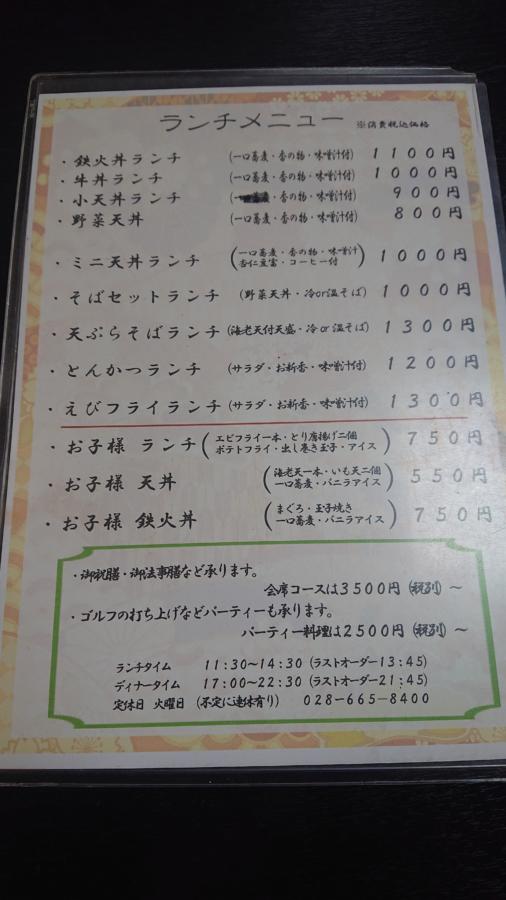 ランチメニュー ※消費税込価格
・鉄火丼ランチ (一口蕎麦・香の物・味噌汁付) 1100円
・牛丼ランチ (一口蕎麦・香の物・味噌汁付) 1000円
・小天丼ランチ (・香の物・味噌汁付) 900円
・野菜天丼 (一口蕎麦・香の物・味噌汁付) 800円
・ミニ天丼ランチ (一口蕎麦・香の物・味噌汁 1000円
杏仁豆富・コーヒー付)
・そばセットランチ (野菜天丼・冷or温そば) 1000円
・天ぷらそばランチ (海老天付天盛・冷or温そば) 1300円
・とんかつランチ (サラダ・お新香・味噌汁付) 1200円
・えびフライランチ (サラダ・お新香・味噌汁付) 1300円
・お子様 ランチ (エビフライ一本・とり唐揚げ二個 750円
ポテトフライ・出し巻き玉子・アイス)
・お子様 天丼 (海老天一本・いも天二個 550円
一口蕎麦・バニラアイス)
・お子様 鉄火丼 (まぐろ・玉子焼き 750円
一口蕎麦・バニラアイス)
・御祝膳・御法事膳など承ります。
会席コースは3500円(税別)~
・ゴルフの打ち上げなどパーティーも承ります。
パーティー料理は2500円(税別)~
ランチタイム 11:30~14:30 (ラストオーダー13:45)
ディナータイム 17:00~22:30 (ラストオーダー21:45)
定休日 火曜日 (不定に連休有り) 028-665-8400